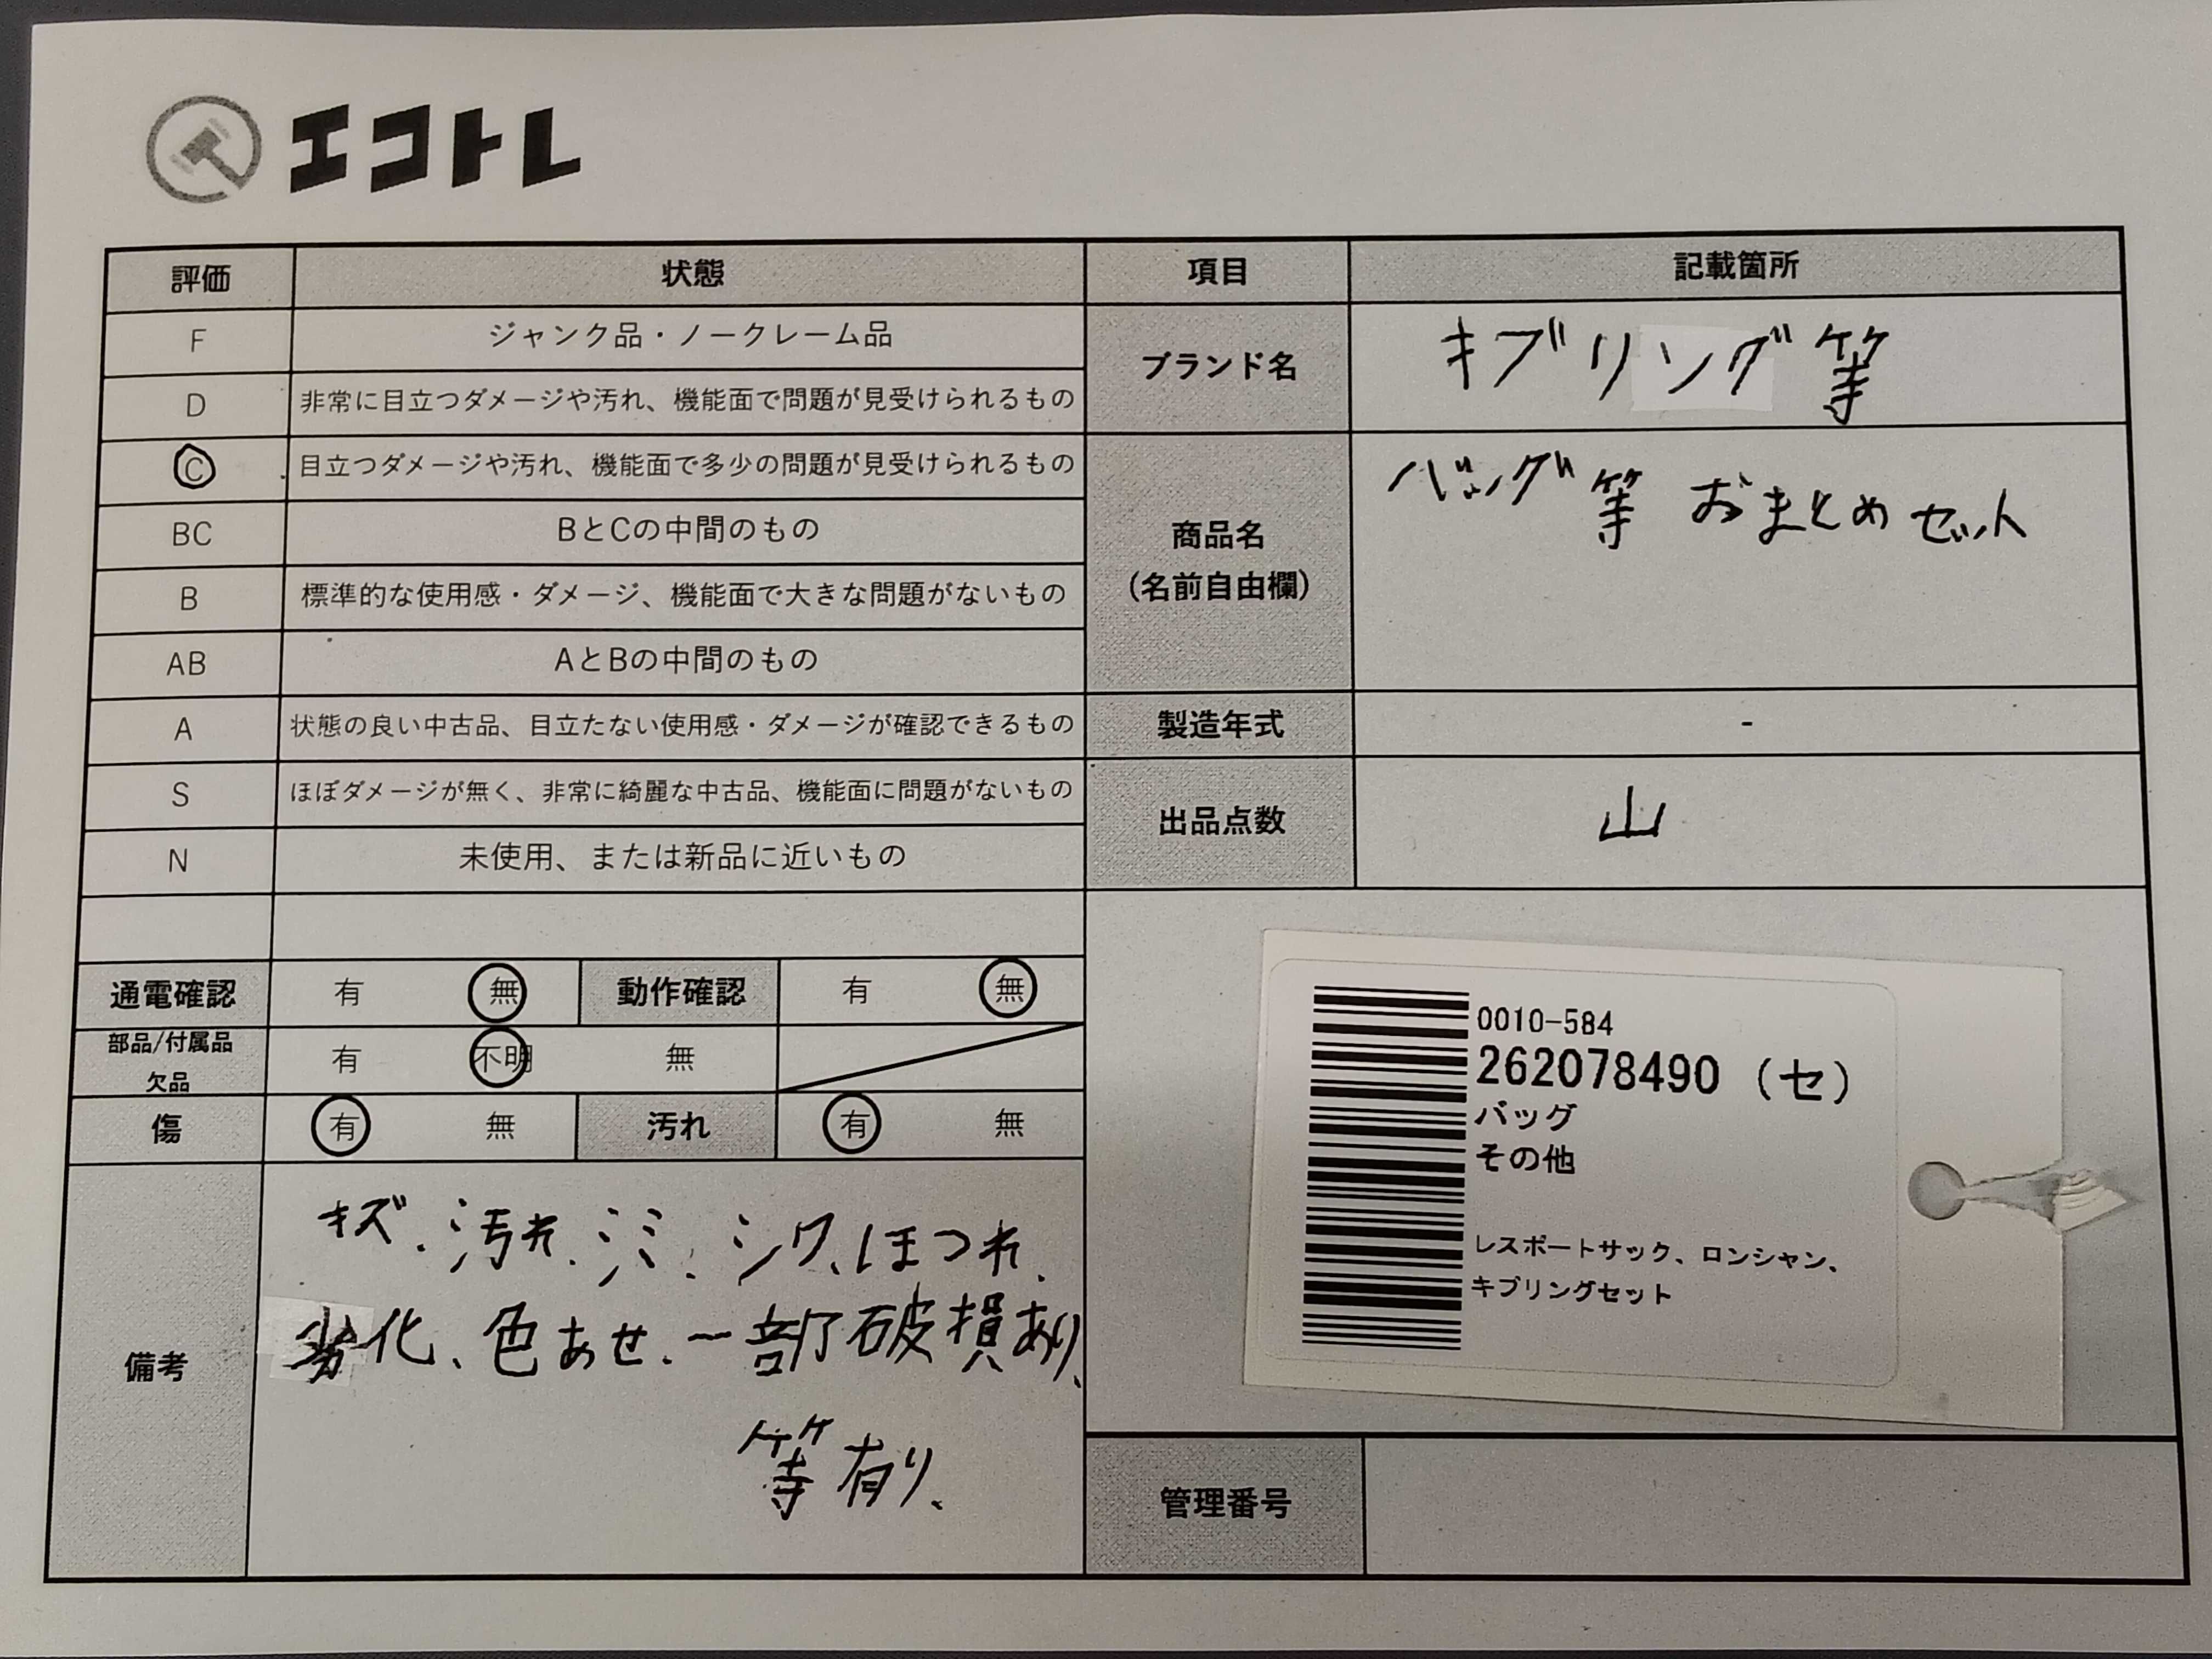 エコトレ
評価 状態 項目 記載箇所
F ジャンク品・ノークレーム品
D 非常に目立つダメージや汚れ、機能面で問題が見受けられるもの
C 目立つダメージや汚れ、機能面で多少の問題が見受けられるもの
BC BとCの中間のもの
B 標準的な使用感・ダメージ、機能面で大きな問題がないもの
AB AとBの中間のもの
A 状態の良い中古品、目立たない使用感・ダメージが確認できるもの
S ほぼダメージが無く、非常に綺麗な中古品、機能面に問題がないもの
N 未使用、または新品に近いもの
ブランド名 キブリング等
商品名
(名前自由欄)
バッグ等 おまとめセット
製造年式 -
出品点数 山
通電確認 有 無 動作確認 有 無
部品/付属品
欠品
有 不明 無
傷 有 無 汚れ 有 無
備考
キズ、汚れ、シミ、シワ、ほつれ、
劣化、色あせ、一部破損あり、
等有り、
0010-584
262078490 (セ)
バッグ
その他
レスポートサック、ロンシャン、
キブリングセット
管理番号